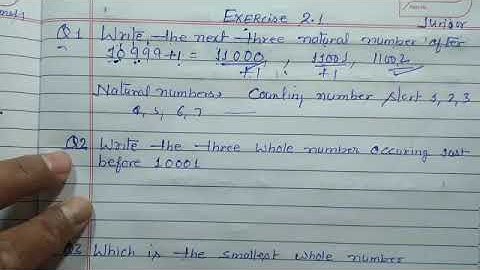 EXERCISE 2.1
Junior
Q1 Write the next three natural number after
10999+1 = 11000, 11001, 11002
+1 +1
Natural numbers Counting number start 1, 2, 3
4, 5, 6, 7
Q2 Write the three whole number occuring just
before 10001
Q3 Which is the smallest whole number